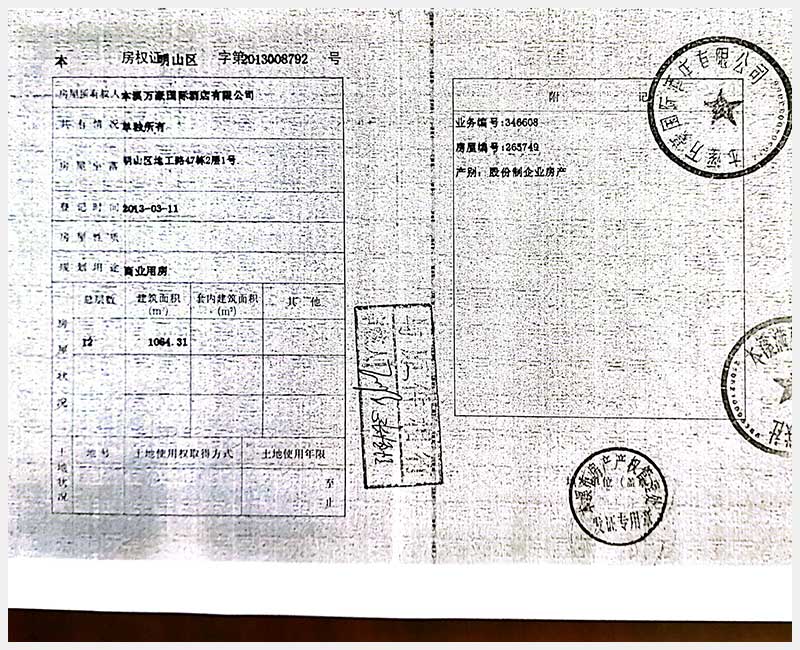 本 房权证明山区 字第2013008792 号
房屋所有权人 本溪万豪国际酒店有限公司
共有情况 单独所有
房屋坐落 明山区地工路47栋2层1号
登记时间 2013-03-11
房屋性质
规划用途 商业用房
房屋状况
总层数 建筑面积(m²) 套内建筑面积(m²) 其他
12 1064.31
土地状况
地号 土地使用权取得方式 土地使用年限
至
止
附 记
业务编号:346608
房屋编号:265749
产别: 股份制企业房产
本溪万豪国际酒店有限公司
发证专用章